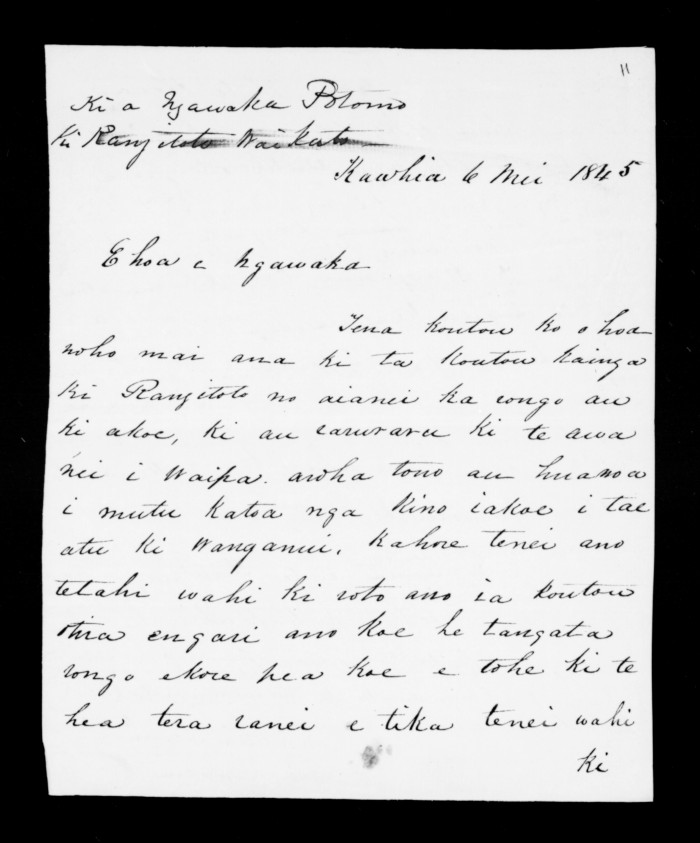 11
Ki a Ngawaka
Ki Rangitoto Waikato
Kawhia 6 Mei 1845
E hoa e Ngawaka
Tena koutou ko o hoa
noho mai ana ki ta koutou kainga
ki Rangitoto no aianei ka rongo au
ki akoe, ki au raruraru ki te awa
nei i Waipa. aroha tono au huanoa
i mutu katoa nga kino iakoe i tae
atu ki Wanganui, Kahore tenei ano
tetahi wahi ki roto ano ia koutou
otira engari ano koe he tangata
rongo ekore pea koe e tohe ki te
hea tera ranei e tika tenei wahi
ki